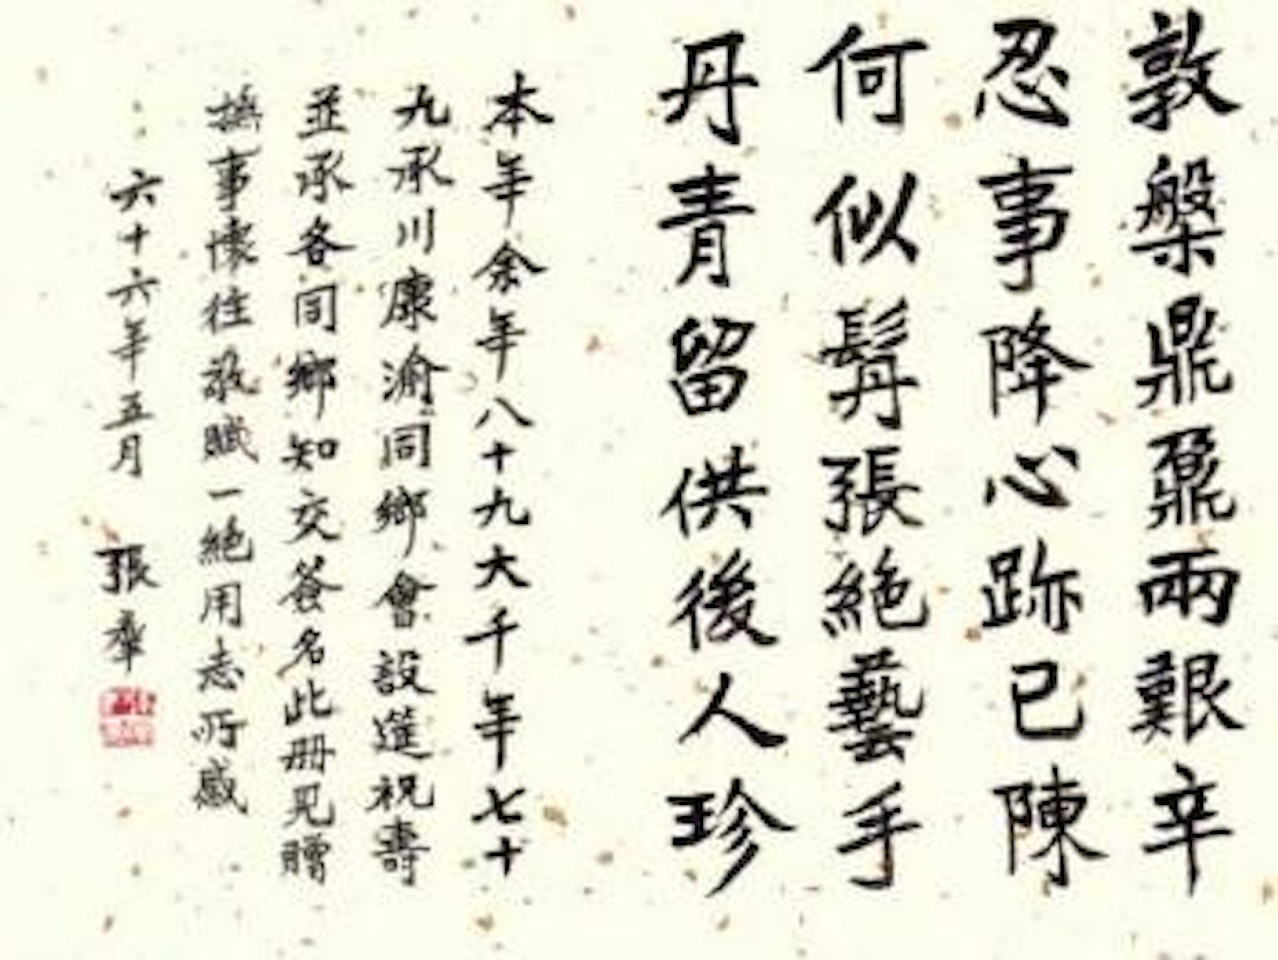 敦槃鼎鼐兩艱辛
忍事降心跡已陳
何似髯張絕藝手
丹青留供後人珍
本年余年八十九大千年七十
九承川康渝同鄉會設筵祝壽
並承各同鄉知交簽名此冊見贈
撫事懷往敬賦一絕用志所感
六十六年五月
張羣